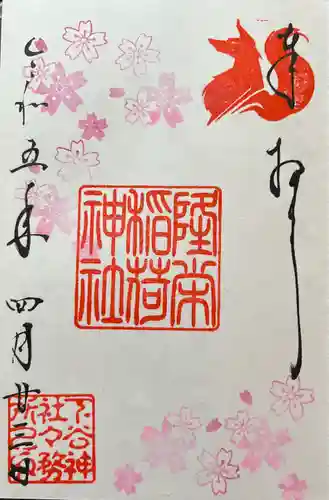 奉拝
隆栄
稲荷
神社
令和五年四月廿三日
下谷神
社々務